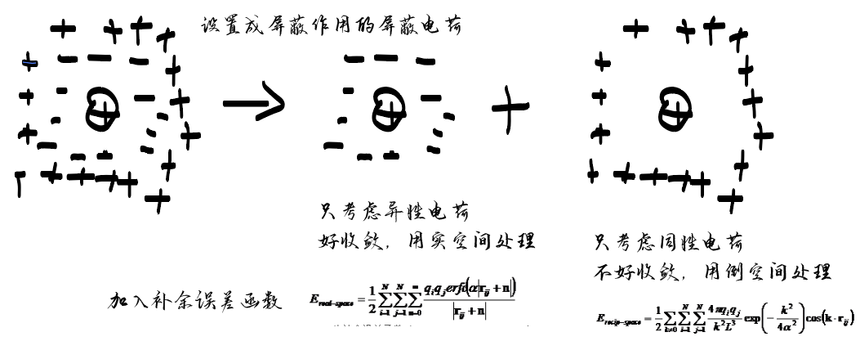 设置成屏蔽作用的屏蔽电荷
只考虑异性电荷
好收敛，用实空间处理
只考虑同性电荷
不好收敛，用倒空间处理
加入补余误差函数
E_{real-space} = \frac{1}{2} \sum_{i=1}^{N} \sum_{j=1}^{N} \sum_{n=0}^{∞} \frac{q_i q_j erfc(α|r_{ij} + n|)}{|r_{ij} + n|}
E_{recip-space} = \frac{1}{2} \sum_{k≠0} \sum_{i=1}^{N} \sum_{j=1}^{N} \frac{4πq_i q_j}{k^2 L^3} exp(-\frac{k^2}{4α^2}) cos(k·r_{ij})